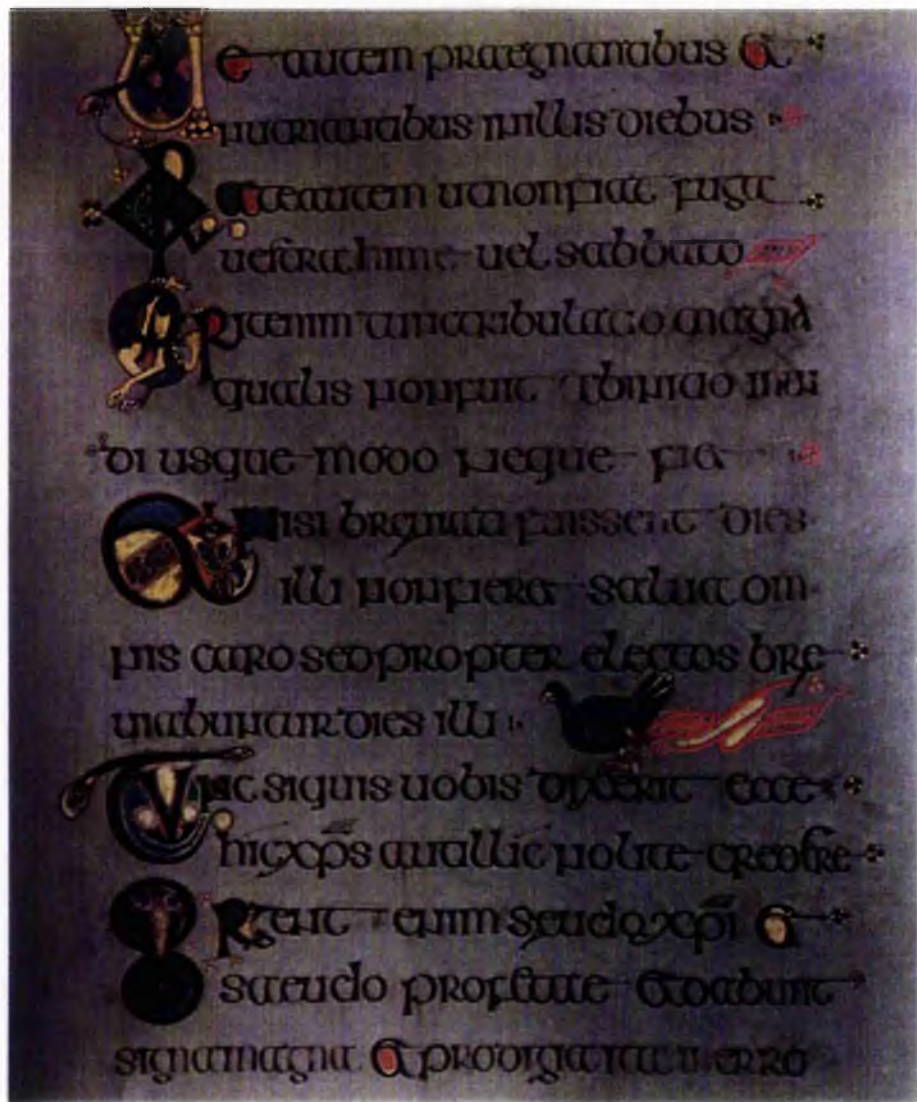 Uae autem praegnantibus et
nutrientibus in illis diebus
Orate autem ut non fiat fuga
uestra hime uel sabbato
Erit enim tunc tribulatio magna
qualis non fuit ab initio mun
di usque modo neque fiet
Et nisi breuiati fuissent dies
illi non fieret salua om
nis caro sed propter electos bre
uiabuntur dies illi
Tunc si quis uobis dixerit ecce
hic xps aut illic nolite credere
Surgent enim seudo xpi et
saeudo profetae et dabunt
signa magna et prodigia ita ut in erro